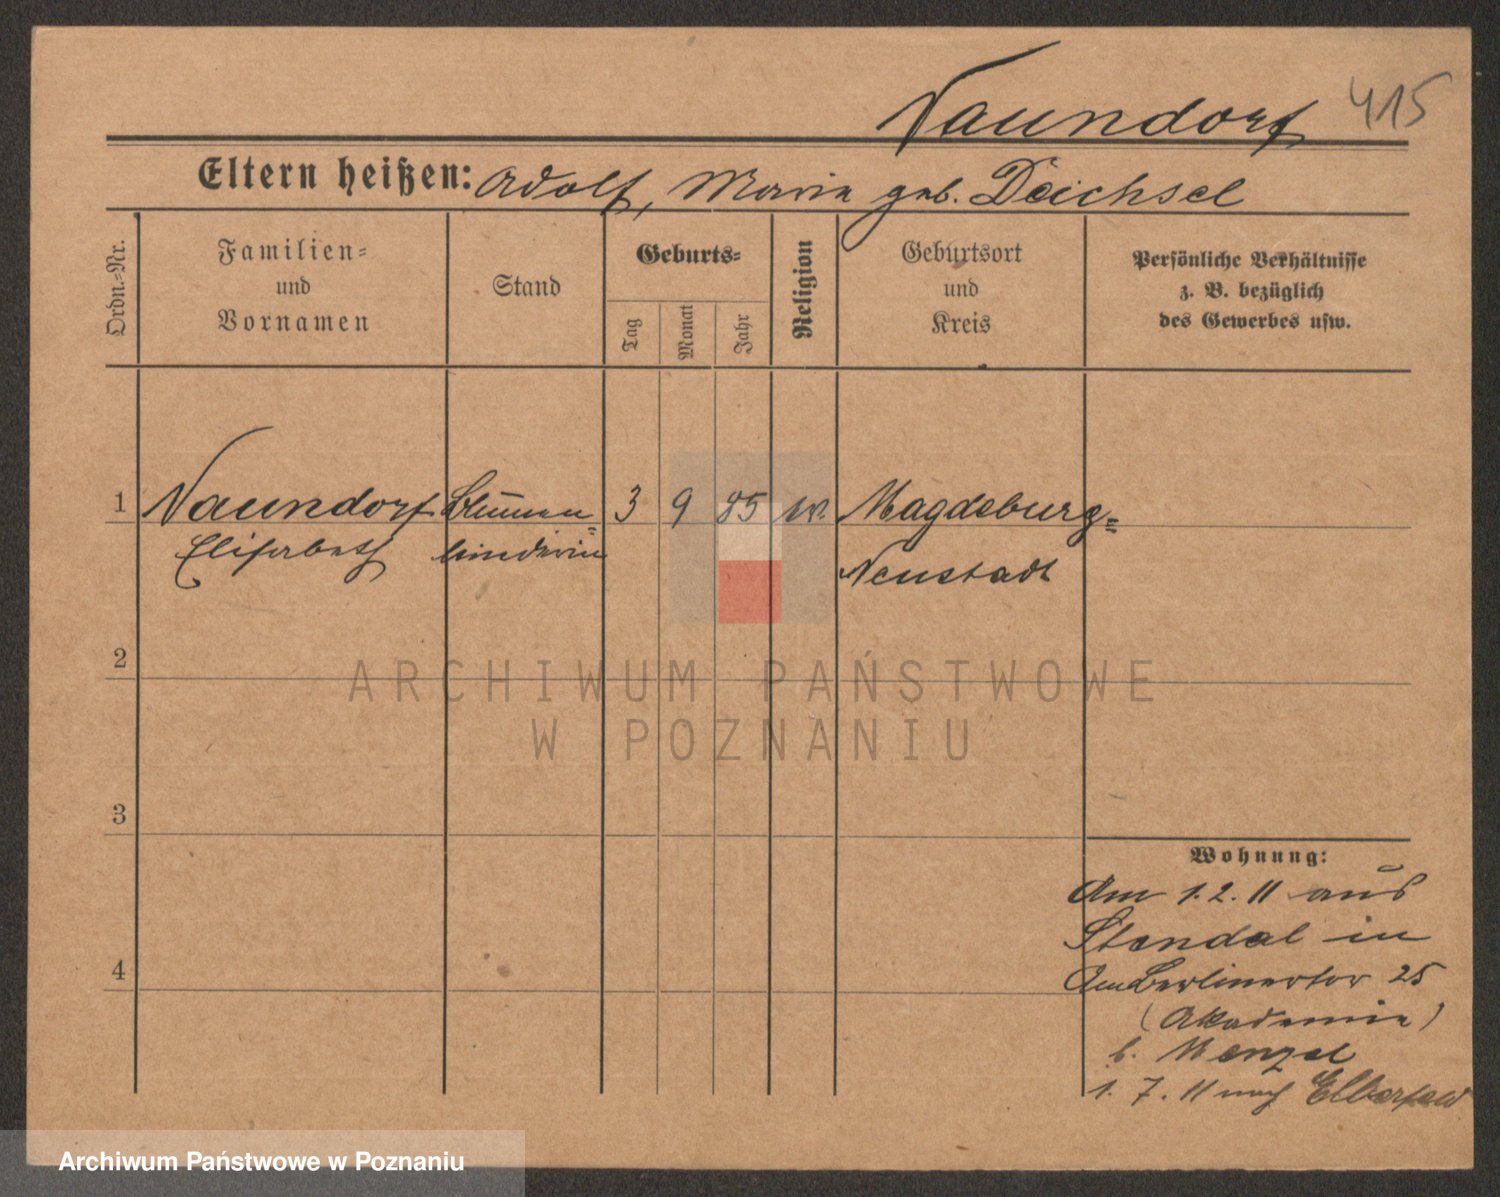 Naundorf 415
Eltern heißen: Adolf, Marie geb. Deichsel
Ordn.-Nr.
Familien-
und
Vornamen
Stand
Geburts-
Tag
Monat
Jahr
Religion
Geburtsort
und
Kreis
Persönliche Verhältnisse
z. B. bezüglich
des Gewerbes usw.
1 Naundorf Blumen- 3 9 85 ev. Magdeburg-
Elisabeth binderin Neustadt
2
3
4
Wohnung:
Am 1.2.11 aus
Stendal in
Am Berlinertor 25
(Akademie)
b. Menzel
1.7.11 nach Elberfeld
ARCHIWUM PAŃSTWOWE
W POZNANIU
Archiwum Państwowe w Poznaniu